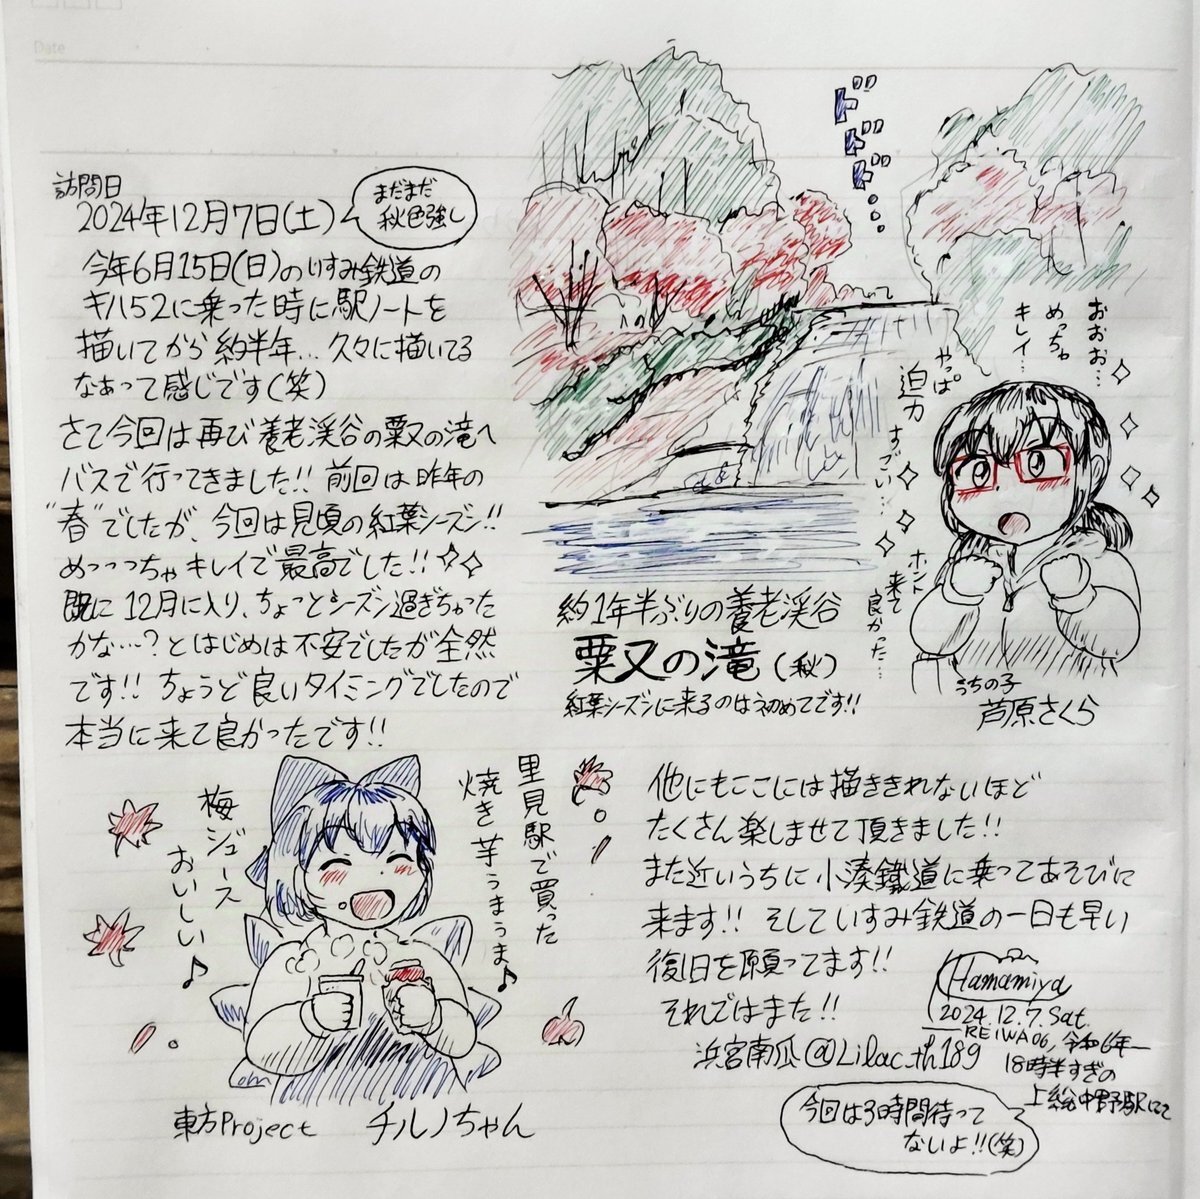 Date
訪問日
2024年12月7日(土)
まだまだ
秋色強し
今年6月15日(日)のいすみ鉄道の
キハ52に乗った時に駅ノートを
描いてから約半年…久々に描いてる
なぁって感じです(笑)
さて今回は再び養老渓谷の粟又の滝へ
バスで行ってきました!! 前回は昨年の
"春"でしたが、今回は見頃の紅葉シーズン!!
めっっっちゃキレイで最高でした!!
既に12月に入り、ちょっとシーズン過ぎちゃった
かな…?とはじめは不安でしたが全然
です!! ちょうど良いタイミングでしたので
本当に来て良かったです!!
ドドド…
おぉぉ…
めっちゃ
キレイ…
やっぱ
迫力
すごい…
ホント
来て
良かった…
うちの子
芦原さくら
約1年半ぶりの養老渓谷
粟又の滝(秋)
紅葉シーズンに来るのは初めてです!!
里見駅で買った
焼き芋うまうま♪
梅ジュース
おいしい♪
東方Project チルノちゃん
他にもここには描ききれないほど
たくさん楽しませて頂きました!!
また近いうちに小湊鐵道に乗ってあそびに
来ます!! そしていすみ鉄道の一日も早い
復旧を願ってます!!
それではまた!!
浜宮南瓜@Lilac_th189
Hamamiya
2024.12.7.Sat.
REIWA06, 令和6年
18時半すぎの
上総中野駅にて
今回は3時間待って
ないよ!!(笑)